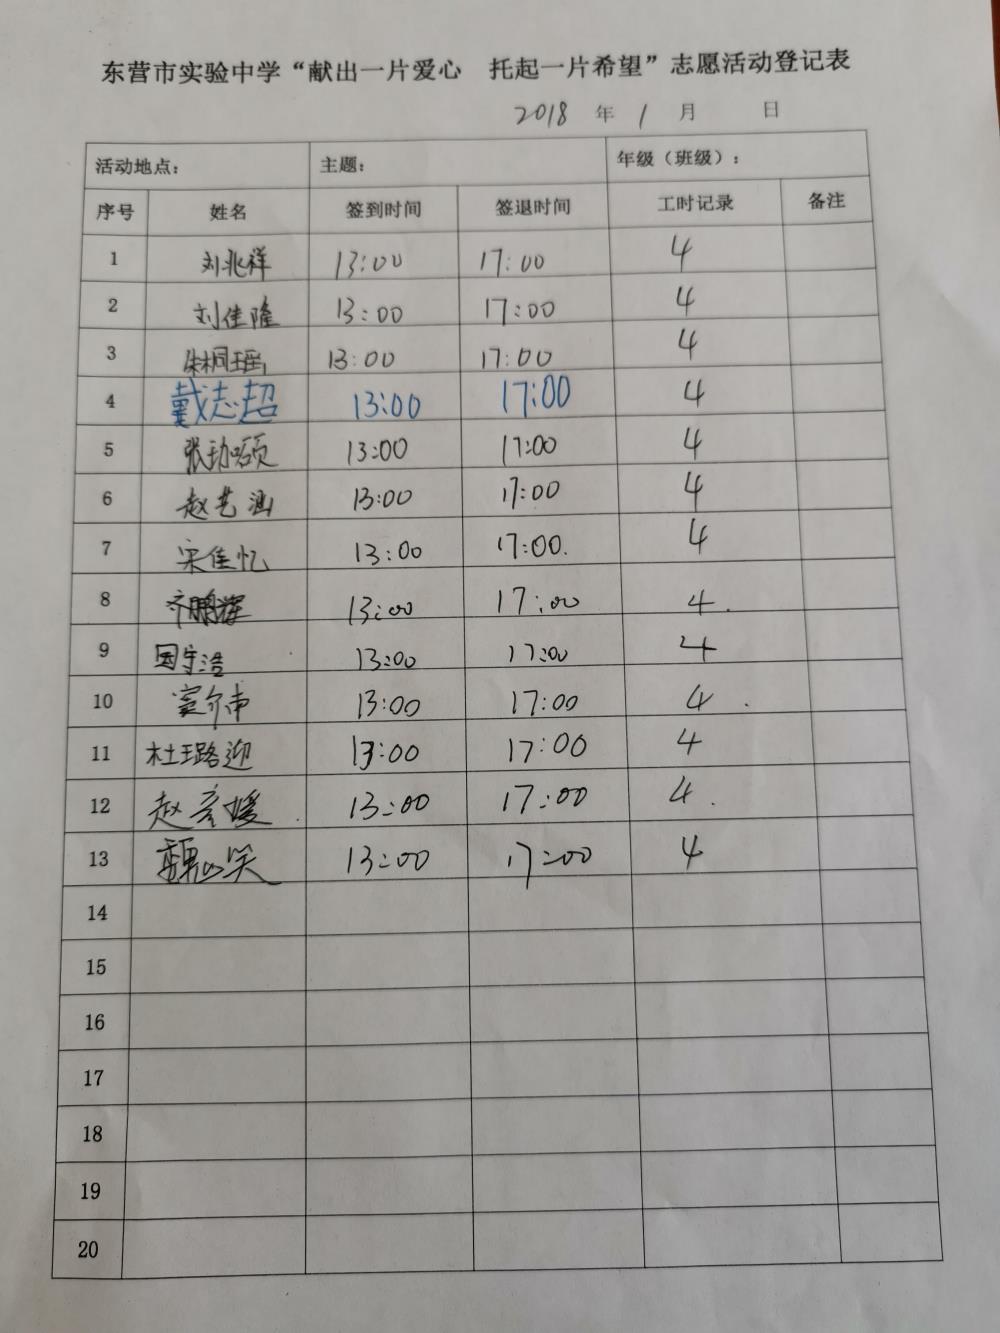 东营市实验中学“献出一片爱心 托起一片希望”志愿活动登记表
2018 年 1 月 日
活动地点： 主题： 年级（班级）：
序号 姓名 签到时间 签退时间 工时记录 备注
1 刘兆祥 13:00 17:00 4
2 刘佳隆 13:00 17:00 4
3 朱桐瑶 13:00 17:00 4
4 戴志超 13:00 17:00 4
5 13:00 17:00 4
6 赵艺涵 13:00 17:00 4
7 宋佳忆 13:00 17:00. 4
8 齐鹏辉 13:00 17:00 4.
9 国宇浩 13:00 17:00 4
10 13:00 17:00 4.
11 杜璐迎 13:00 17:00 4
12 赵彦媛 13:00 17:00 4.
13 13:00 17:00 4
14
15
16
17
18
19
20